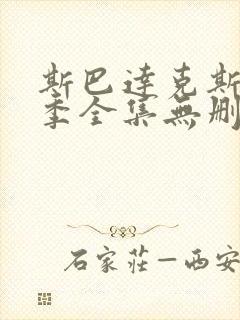 斯巴達克斯
季全集無刪
石家莊—西安